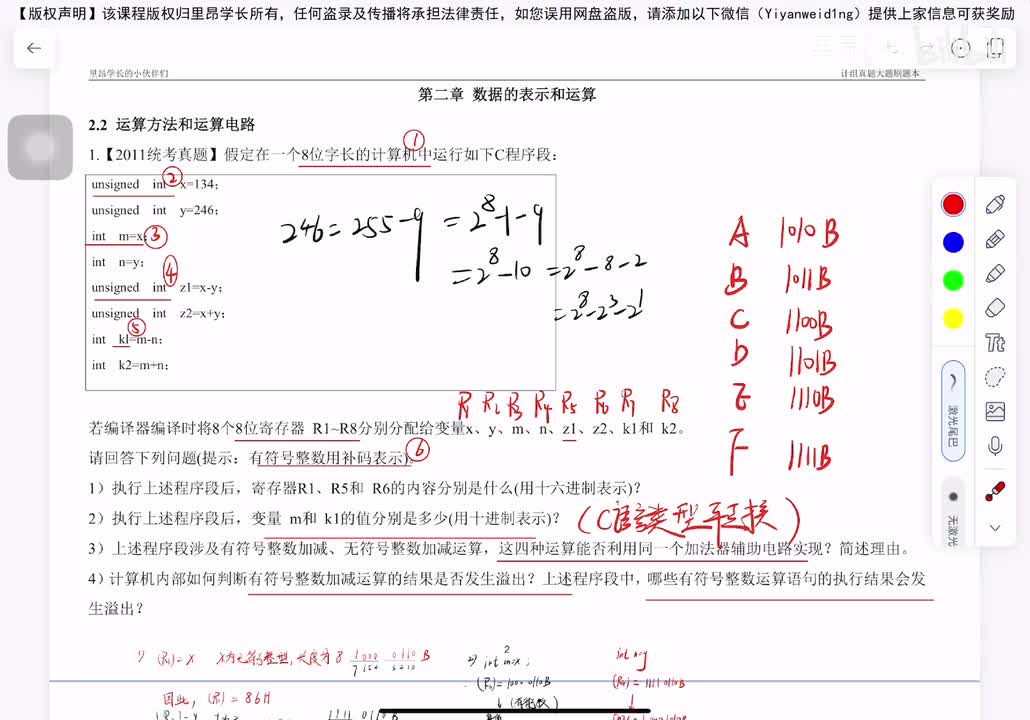 【版权声明】该课程版权归里昂学长所有，任何盗录及传播将承担法律责任，如您误用网盘盗版，请添加以下微信（Yiyanweid1ng）提供上家信息可获奖励
里昂学长的小伙伴们
计组真题大题刷题本
第二章 数据的表示和运算
2.2 运算方法和运算电路
1.【2011统考真题】假定在一个8位字长的计算机中运行如下C程序段：
①
unsigned int x=134;
②
unsigned int y=246;
int m=x;
③
int n=y;
④
unsigned int z1=x-y;
unsigned int z2=x+y;
⑤
int k1=m-n;
int k2=m+n;
246=255-9 =2^8-1-9
=2^8-10 =2^8-8-2
=2^8-2^3-2^1
A 1010B
B 1011B
C 1100B
D 1101B
E 1110B
F 1111B
Tt
激光尾巴
无激光
R1 R2 R3 R4 R5 R6 R7 R8
若编译器编译时将8个8位寄存器 R1~R8分别分配给变量x、y、m、n、z1、z2、k1和 k2。
请回答下列问题(提示：有符号整数用补码表示)。
⑥
1）执行上述程序段后，寄存器R1、R5和 R6的内容分别是什么(用十六进制表示)？
2）执行上述程序段后，变量 m和 k1的值分别是多少(用十进制表示)？
（C语言类型转换）
3）上述程序段涉及有符号整数加减、无符号整数加减运算，这四种运算能否利用同一个加法器辅助电路实现？简述理由。
4）计算机内部如何判断有符号整数加减运算的结果是否发生溢出？上述程序段中，哪些有符号整数运算语句的执行结果会发
生溢出？
1) (R1)=x x为无符号整型，长度为8 1000 0110 B
2) int m=x;
int n=y
(R3)=1000 0110B
(R4)=1111 0110B
因此，(R1)=86H